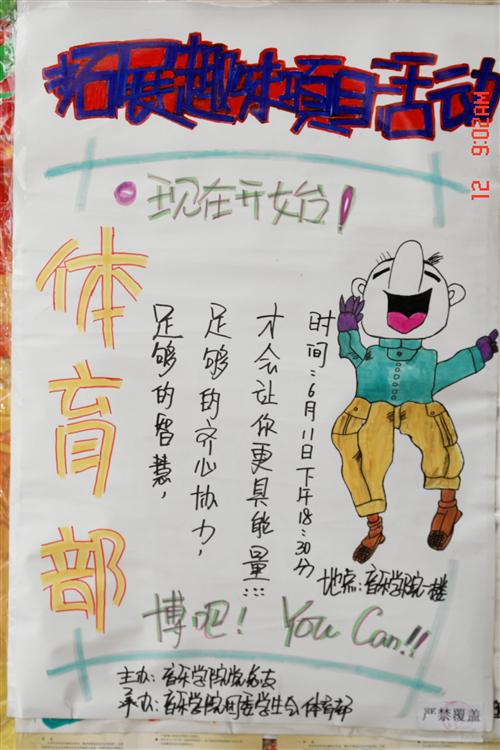 拓展趣味项目活动
现在开始台!
体育部
足够的智慧,
足够的齐心协力,
才会让你更具能量:::
时间:6月11日下午18:30分
地点:音乐学院一楼
博吧! You Can!!
主办:音乐学院党总支
承办:音乐学院团委学生会体育部
严禁覆盖